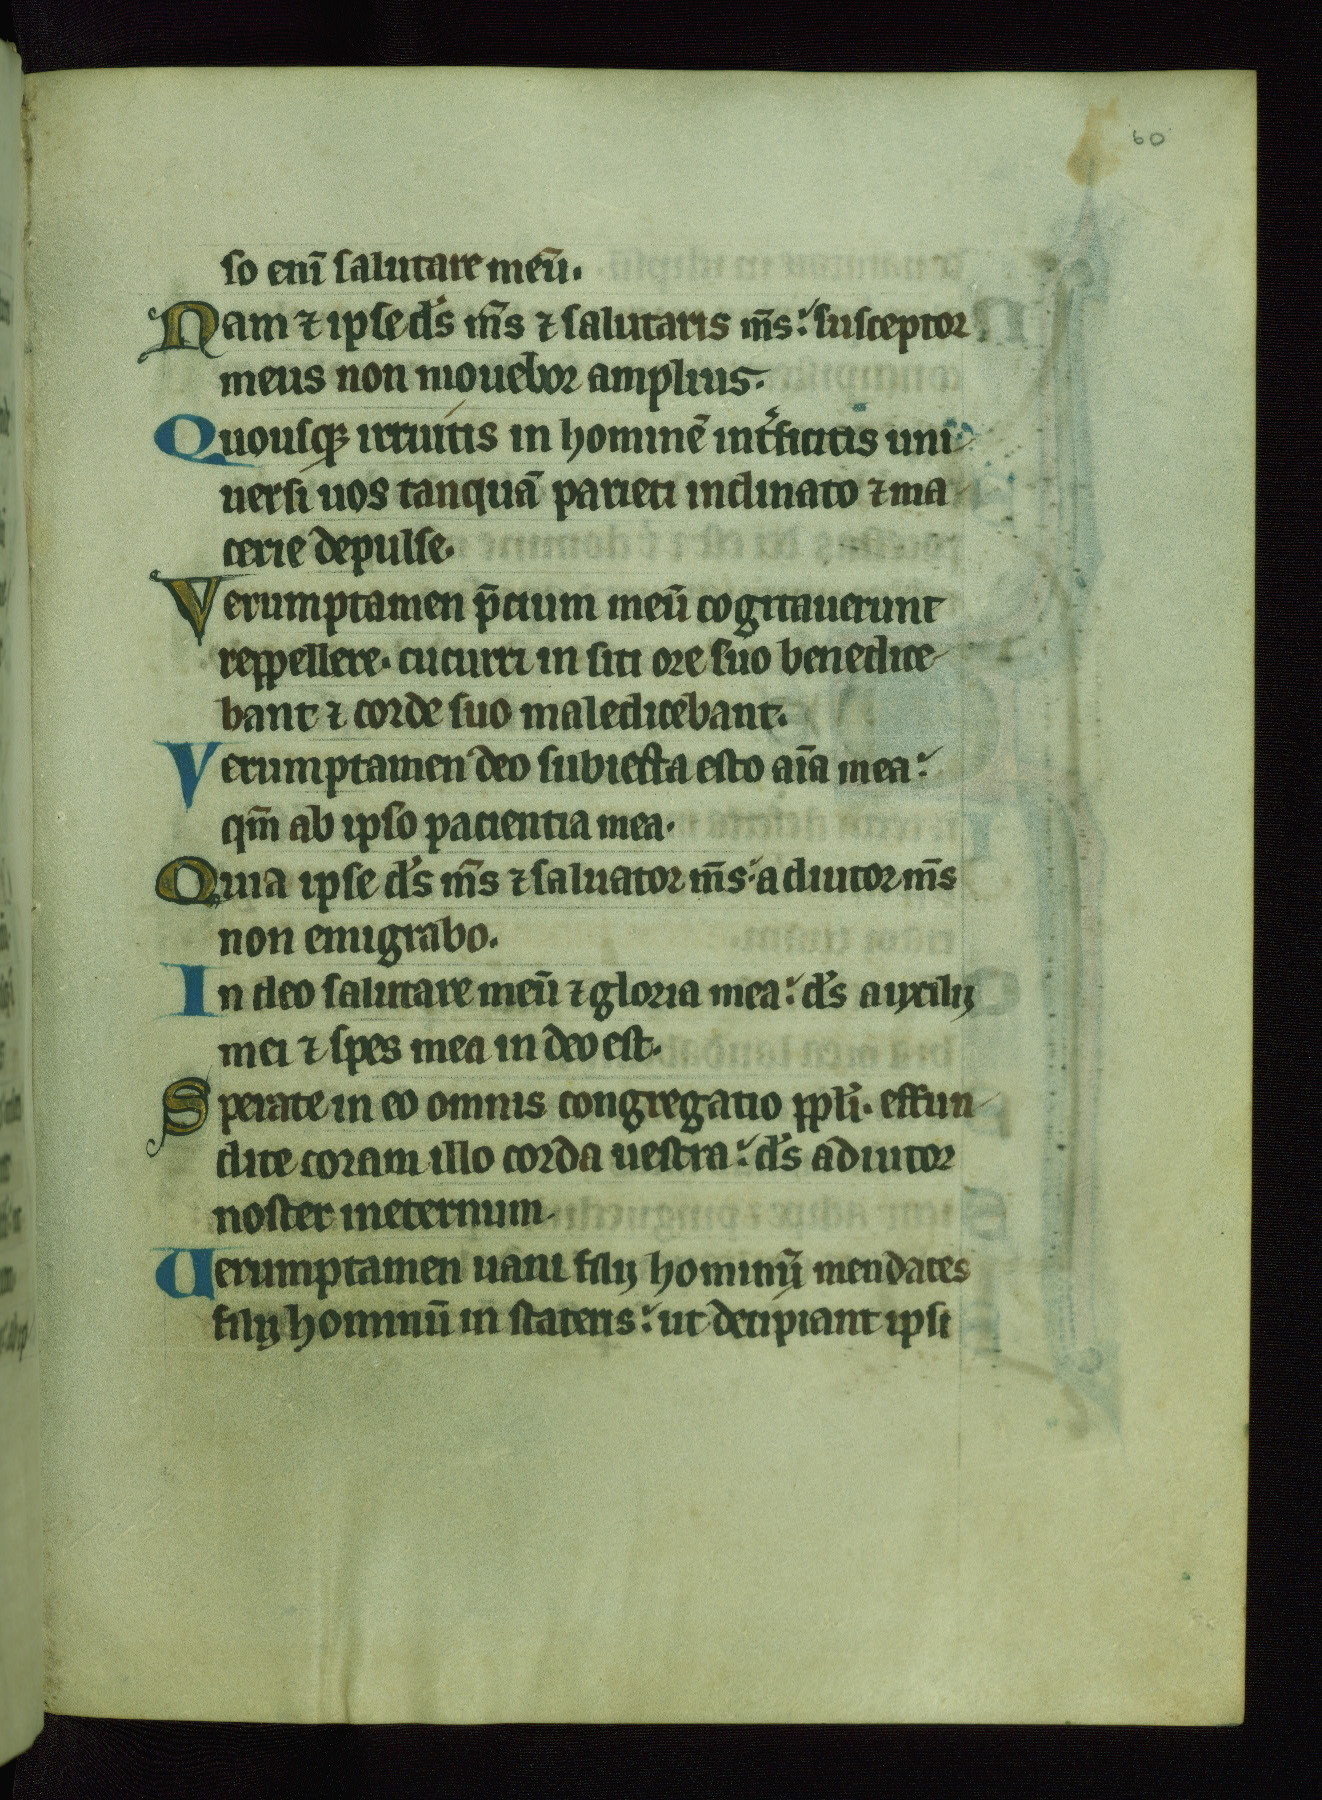 60
so enī salutare meū.
Nam ⁊ ipse ds̄ ms̄ ⁊ salutaris ms̄: susceptor
meus non mouebor amplius.
Quousqꝫ irruitis in hominē int̄ficitis uni
uersi uos tanquā parieti inclinato ⁊ ma
cerie depulse.
Verumptamen p̄cium meū cogitauerunt
reppellere. cucurri in siti ore suo benedice
bant ⁊ corde suo maledicebant.
Verumptamen deo subiecta esto aīa mea:
qm̄ ab ipso paciencia mea.
Quia ipse ds̄ ms̄ ⁊ saluator ms̄: adiutor ms̄
non emigrabo.
In deo salutare meū ⁊ gloria mea: ds̄ auxilij
mei ⁊ spes mea in deo est.
Sperate in eo omnis congregatio ppl̄i. effun
dite coram illo corda uestra: ds̄ adiutor
noster ineternum.
Uerumptamen uani filij hominū mendaces
filij hominū in stateris: ut decipiant ipsi